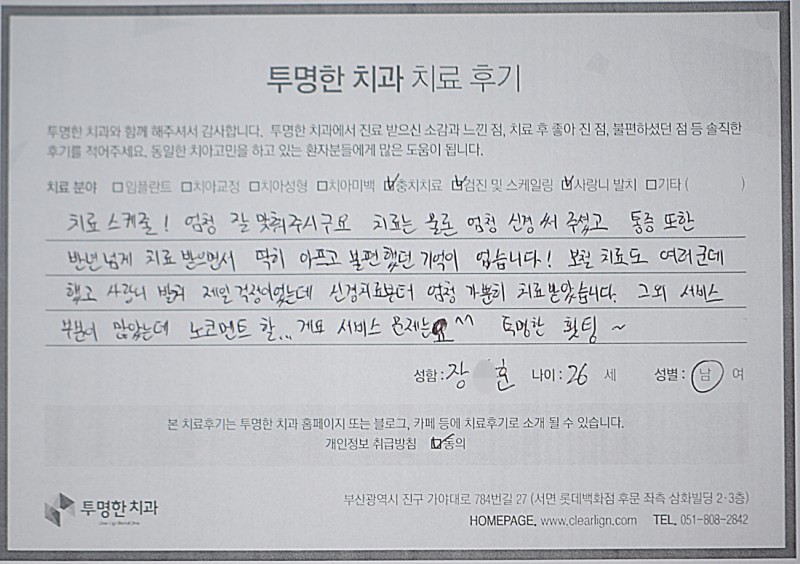 투명한 치과 치료 후기
투명한 치과와 함께 해주셔서 감사합니다. 투명한 치과에서 진료 받으신 소감과 느낀 점, 치료 후 좋아 진 점, 불편하셨던 점 등 솔직한
후기를 적어주세요. 동일한 치아고민을 하고 있는 환자분들에게 많은 도움이 됩니다.
치료 분야 □임플란트 □치아교정 □치아성형 □치아미백 ☑충치치료 ☑검진 및 스케일링 ☑사랑니 발치 □기타 ( )
치료 스케줄! 엄청 잘 맞춰주시구요 치료는 물론 엄청 신경써 주셨고 통증 또한
반년넘게 치료 받으면서 딱히 아프고 불편했던 기억이 없습니다! 보철 치료도 여러군데
했고 사랑니 발치 제일 걱정이었는데 신경치료부터 엄청 가뿐히 치료받았습니다. 그외 서비스
부분이 많았는데 노코멘트 할... 서비스 문제는요^^ 투명한 홧팅~
성함: 장 훈 나이: 26 세 성별: 남 여
본 치료후기는 투명한 치과 홈페이지 또는 블로그, 카페 등에 치료후기로 소개 될 수 있습니다.
개인정보 취급방침 ☑동의
투명한 치과
부산광역시 진구 가야대로 784번길 27 (서면 롯데백화점 후문 좌측 삼화빌딩 2-3층)
HOMEPAGE. www.clearlign.com TEL. 051-808-2842